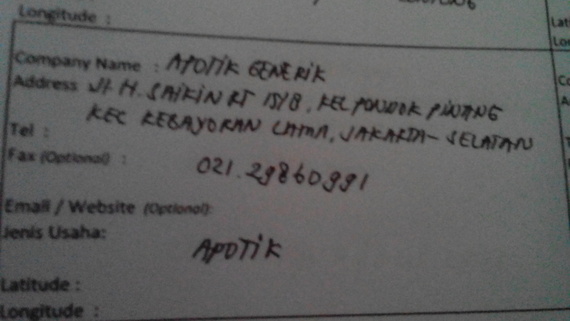 Longitude :
Company Name : APOTIK GENERIK
Address Jl. H. SAIKIN RT 15/8, KEL PONDOK PINANG
KEC KEBAYORAN LAMA, JAKARTA-SELATAN
Tel :
Fax (Optional) :
021.29860991
Email / Website (Optional):
Jenis Usaha:
APOTIK
Latitude :
Longitude :